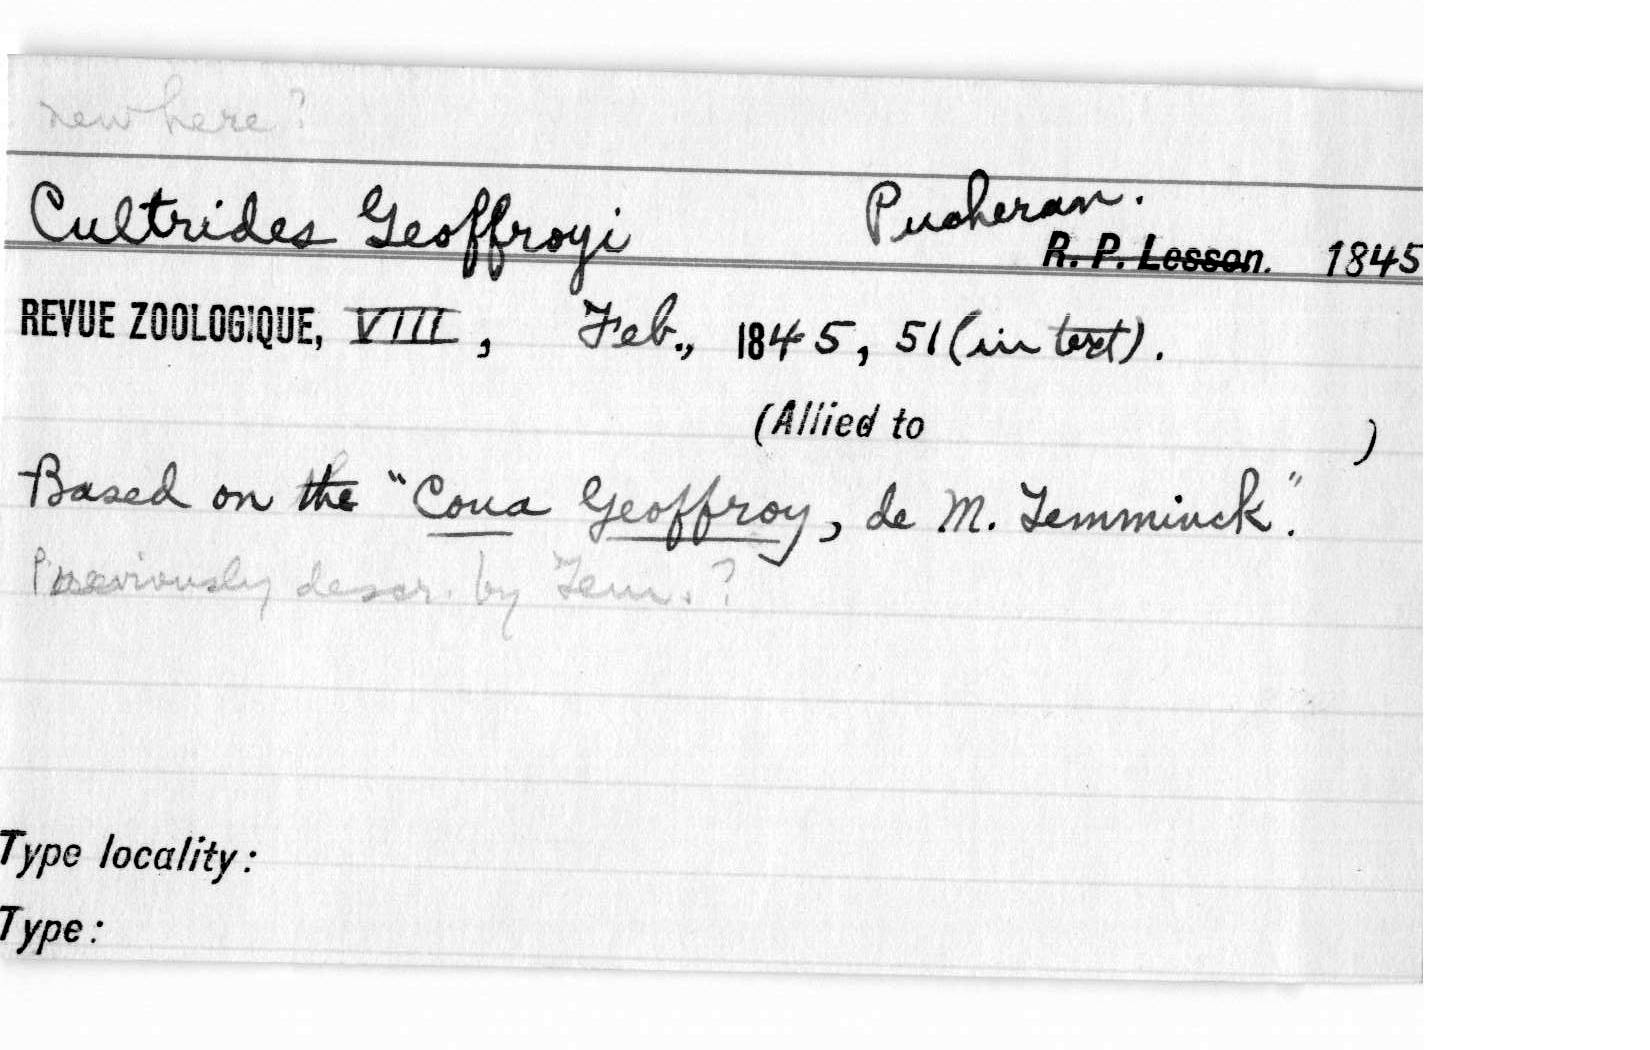 new here?
Cultrides Geoffroyi Pucheran.
R. P. Lesson. 1845
REVUE ZOOLOGIQUE, VIII, Feb., 1845, 51 (in text).
(Allied to )
Based on the "Coua Geoffroy, de M. Temminck".
Previously descr. by Tem.?
Type locality:
Type: